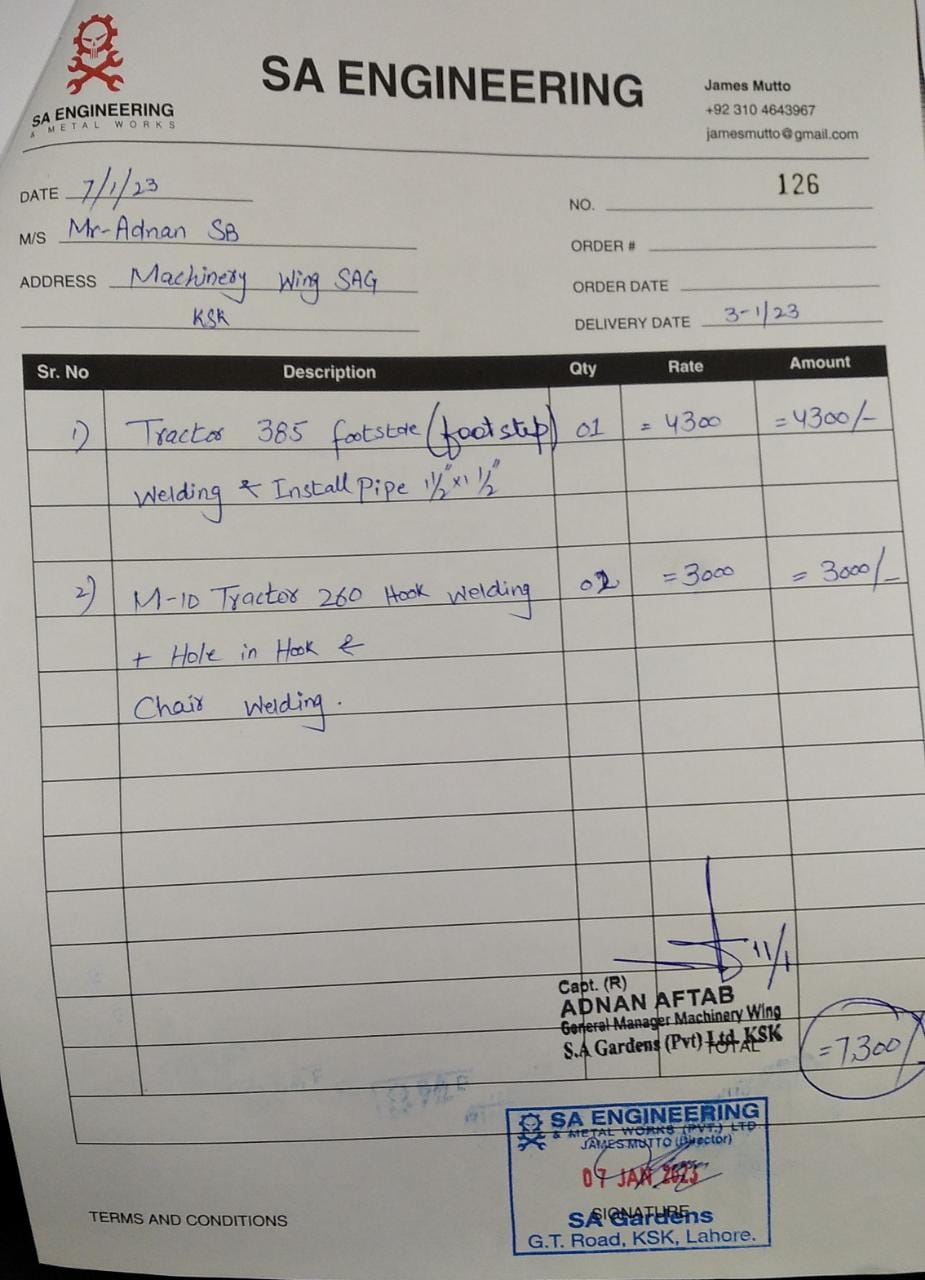 SA ENGINEERING
& METAL WORKS
SA ENGINEERING
James Mutto
+92 310 4643967
jamesmutto@gmail.com
DATE 7/1/23
NO. 126
M/S Mr-Adnan SB
ORDER #
ADDRESS Machinery Wing SAG
KSK
ORDER DATE
DELIVERY DATE 3-1/23
Sr. No Description Qty Rate Amount
1) Tractor 385 footstore (footstep) 01 = 4300 = 4300/-
Welding & Install Pipe 1½"x1½"
2) M-10 Tractor 260 Hook Welding 02 = 3000 = 3000/-
+ Hole in Hook &
Chair Welding.
11/1
Capt. (R)
ADNAN AFTAB
General Manager Machinery Wing
S.A Gardens (Pvt) Ltd. KSK
TOTAL =7,300/
SA ENGINEERING
& METAL WORKS (PVT.) LTD.
JAMES MUTTO (Director)
07 JAN 2023
SIGNATURE
SA Gardens
G.T. Road, KSK, Lahore.
TERMS AND CONDITIONS